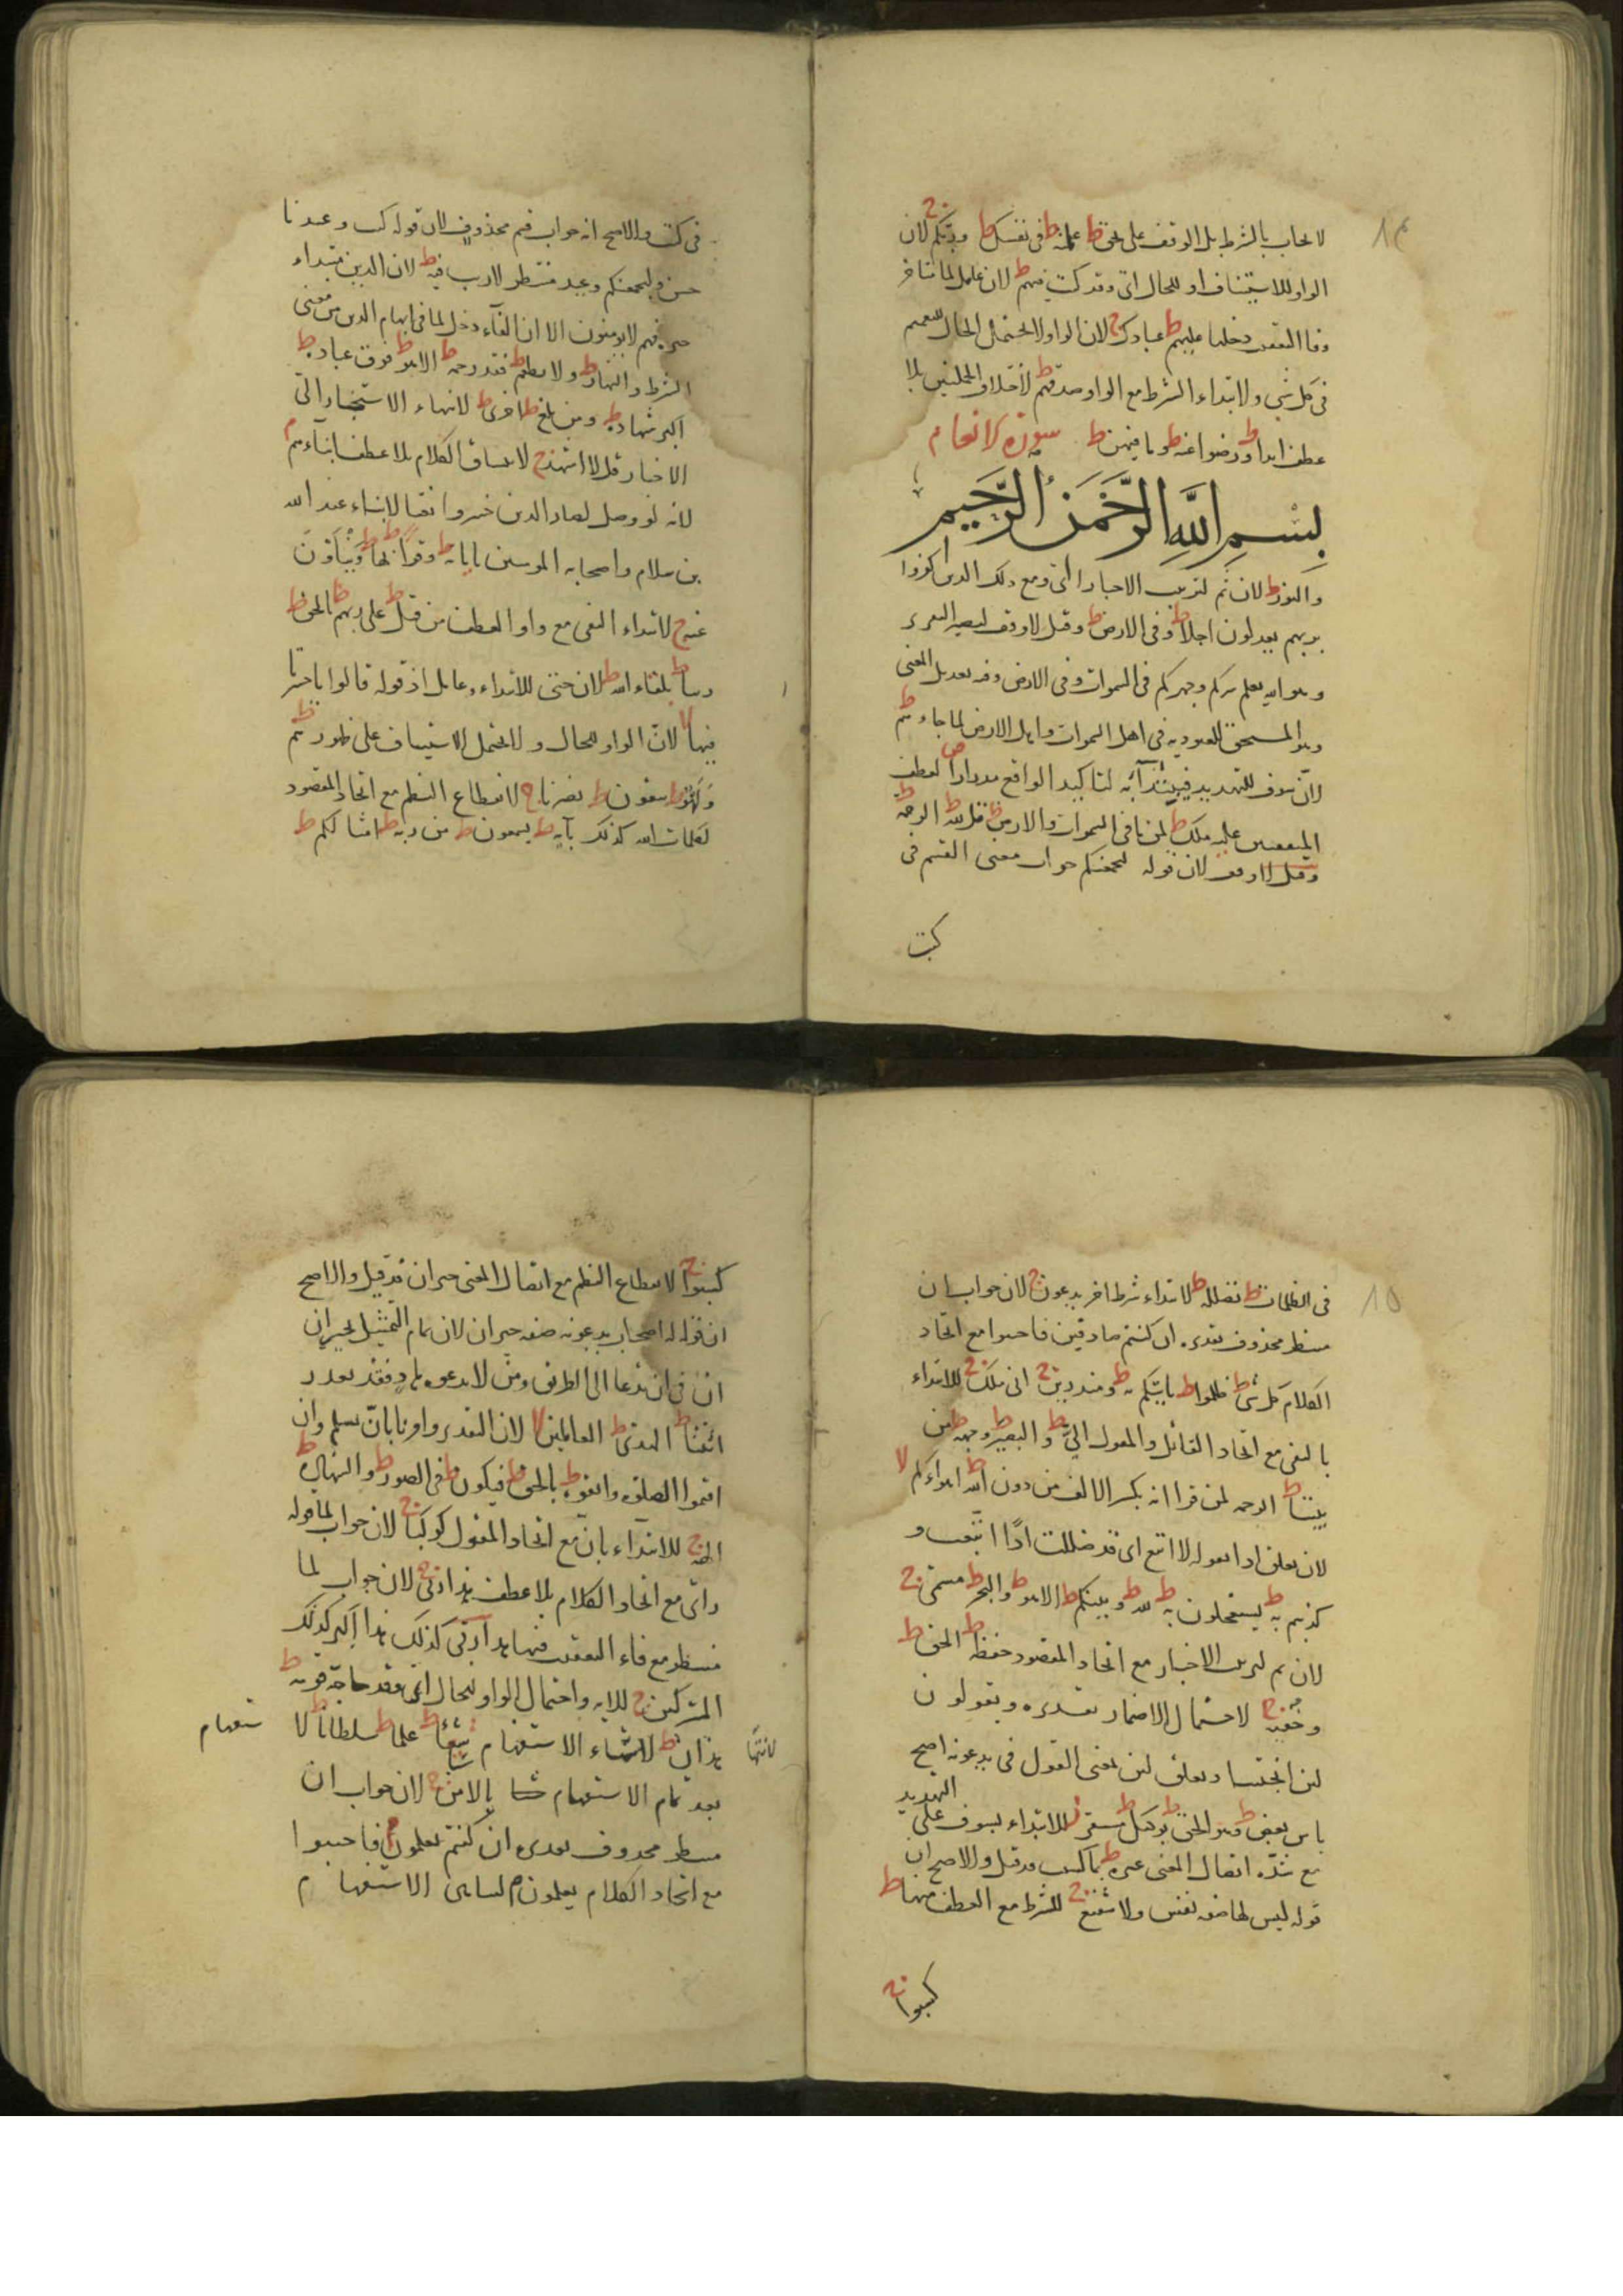 ١٤
لا يجاب بالشرط بل الوقف على بحق ط علمته ط في نفسك ط وربكم ج لان
الواو للاستيناف او للحال اي وقد كنت فيهم ط لان عامل لما متاخر
وفا التعقيب دخلها عليهم ط عبادك ج لان الواو لا يحتمل الحال للتعميم
في كل شي ولابتداء الشرط مع الواو صدقهم ط لاختلاف الجملتين بلا
عطف ابدا ط ورضوا عنه ط وما فيهن ط سورة الانعام
بسم الله الرحمن الرحيم
والنور ط لان ثم لترتيب الاخبار اي ومع ذلك الذين كفروا
بربهم يعدلون اجلا ط وفي الارض ط وقيل لا وقف ليصير التقدير
وهو الله يعلم سركم وجهركم في السموات وفي الارض وفيه بعد بل المعنى
وهو المستحق للعبودية في اهل السموات واهل الارض لما جاءهم ط
لان سوف للتهديد فيبتدأ به لتاكيد الواقع مدرارا ص لعطف
المتفقتين عليه ملك ط لمن ما في السموات والارض ط قل لله ط الرحمة ط
وقيل لا وقف لان قوله ليجمعنكم جواب معنى القسم في
كتب
في كتب والاصح انه جواب قسم محذوف لان قوله كتب وعد نا
جز وليجمعنكم وعيد منتظر لا ريب فيه ط لان الذين مبتداء
خبره فهم لا يومنون الا ان الفاء دخل لما في ابهام الذين من معنى
الشرط والنهار ط ولا يطعم ط فقد رحمه ط الا هو ط فوق عباده ط
اكبر شهادة ط ومن بلغ ط اخرى ط لانتهاء الاستخبار الى
الاخبار قل لا اشهد ج لاتساق الكلام بلا عطف ابناءهم م
لانه لو وصل لصار الذين خسروا نعتا لابناء عبد الله
بن سلام واصحابه المومنين باياته ط وقرا ط بها ط وينأون
عنه ج لابتداء النفي مع واو العطف من قبل ط على ربهم ط بالحق ط
وربنا ط بلقاء الله ط لان حتى للابتداء وعامل اذ قوله قالوا يا حسرتنا
فيها لا لان الواو للحال ولا يحتمل الاستيناف على ظهورهم ط
ولهو ط يتقون ط نصرنا ج لانقطاع النظم مع اتحاد المقصود
لكلمات الله كذلك بآية ط يسمعون ط من ربه ط امثالكم ط
١٥
في الظلمات ط يضلله ط لابتداء شرط اخر يدعون ج لان جواب ان
منتظر محذوف تقديره ان كنتم صادقين فاجيبوا مع اتحاد
الكلام كل شي ط ظلموا ط ياتيكم به ط ومنذرين ج اني ملك ج للابتداء
بالنفي مع اتحاد القائل والمقول الي ط والبصير ط وجهه ط من
بيننا ط الرحمة لمن قرا انه بكسر الالف من دون الله ط اهواءكم لا
لان تعلق اذا بقوله لا اتبع اي قد ضللت اذًا اتبعت و
كذبتم به ط يستعجلون به ط لله ط وبينكم ط الا هو ط والبحر ط مسمى ج
لان ثم لترتيب الاخبار مع اتحاد المقصود حفظة ط الحق ط
وخفية ج لاحتمال الاضمار تقديره ويقولون
لئن انجيتنا وتعلق لئن بمعنى القول في يدعونه اصح
باس بعض ط وهو الحق ط بوكيل ط مستقر ز للابتداء بسوف على التهديد
مع شدة اتصال المعنى غيره ط بما كسبت وقيل والاصح ان
قوله ليس لها صفة نفس ولا شفيع ج للشرط مع العطف منها ط
كسبوا ج
كسبوا ج لانقطاع النظم مع اتصال المعنى حيران قد قيل والاصح
ان قوله له اصحاب يدعونه صفة حيران لان تمام التمثيل بحيران
ائتنا ط الهدى ط العالمين لا لان التقدير وامرنا بان نسلم وان
اقيموا الصلوة واتقوه ط بالحق ط فيكون ط في الصور ط والشهادة ط
الهة ج للابتداء بان مع اتحاد المقول كوكبا ج لان جواب لما قوله
راى مع اتحاد الكلام بلا عطف هذا ربي ج لان جواب لما
منتظر مع فاء التعقيب فيها هذا ربي كذلك هذا اكبر كذلك
المشركين ج للاية واحتمال الواو للحال اي وقد حاجه قومه ط
هذان ط لانتهاء الاستفهام شيئا ط علما ط سلطانا ط لا
لانتها
ستفهام
بعد تمام الاستفهام بالامن ج لان جواب ان
منتظر محذوف تقديره ان كنتم تعلمون م فاجيبوا
مع اتحاد الكلام يعلمون م لتناهي الاستفهام